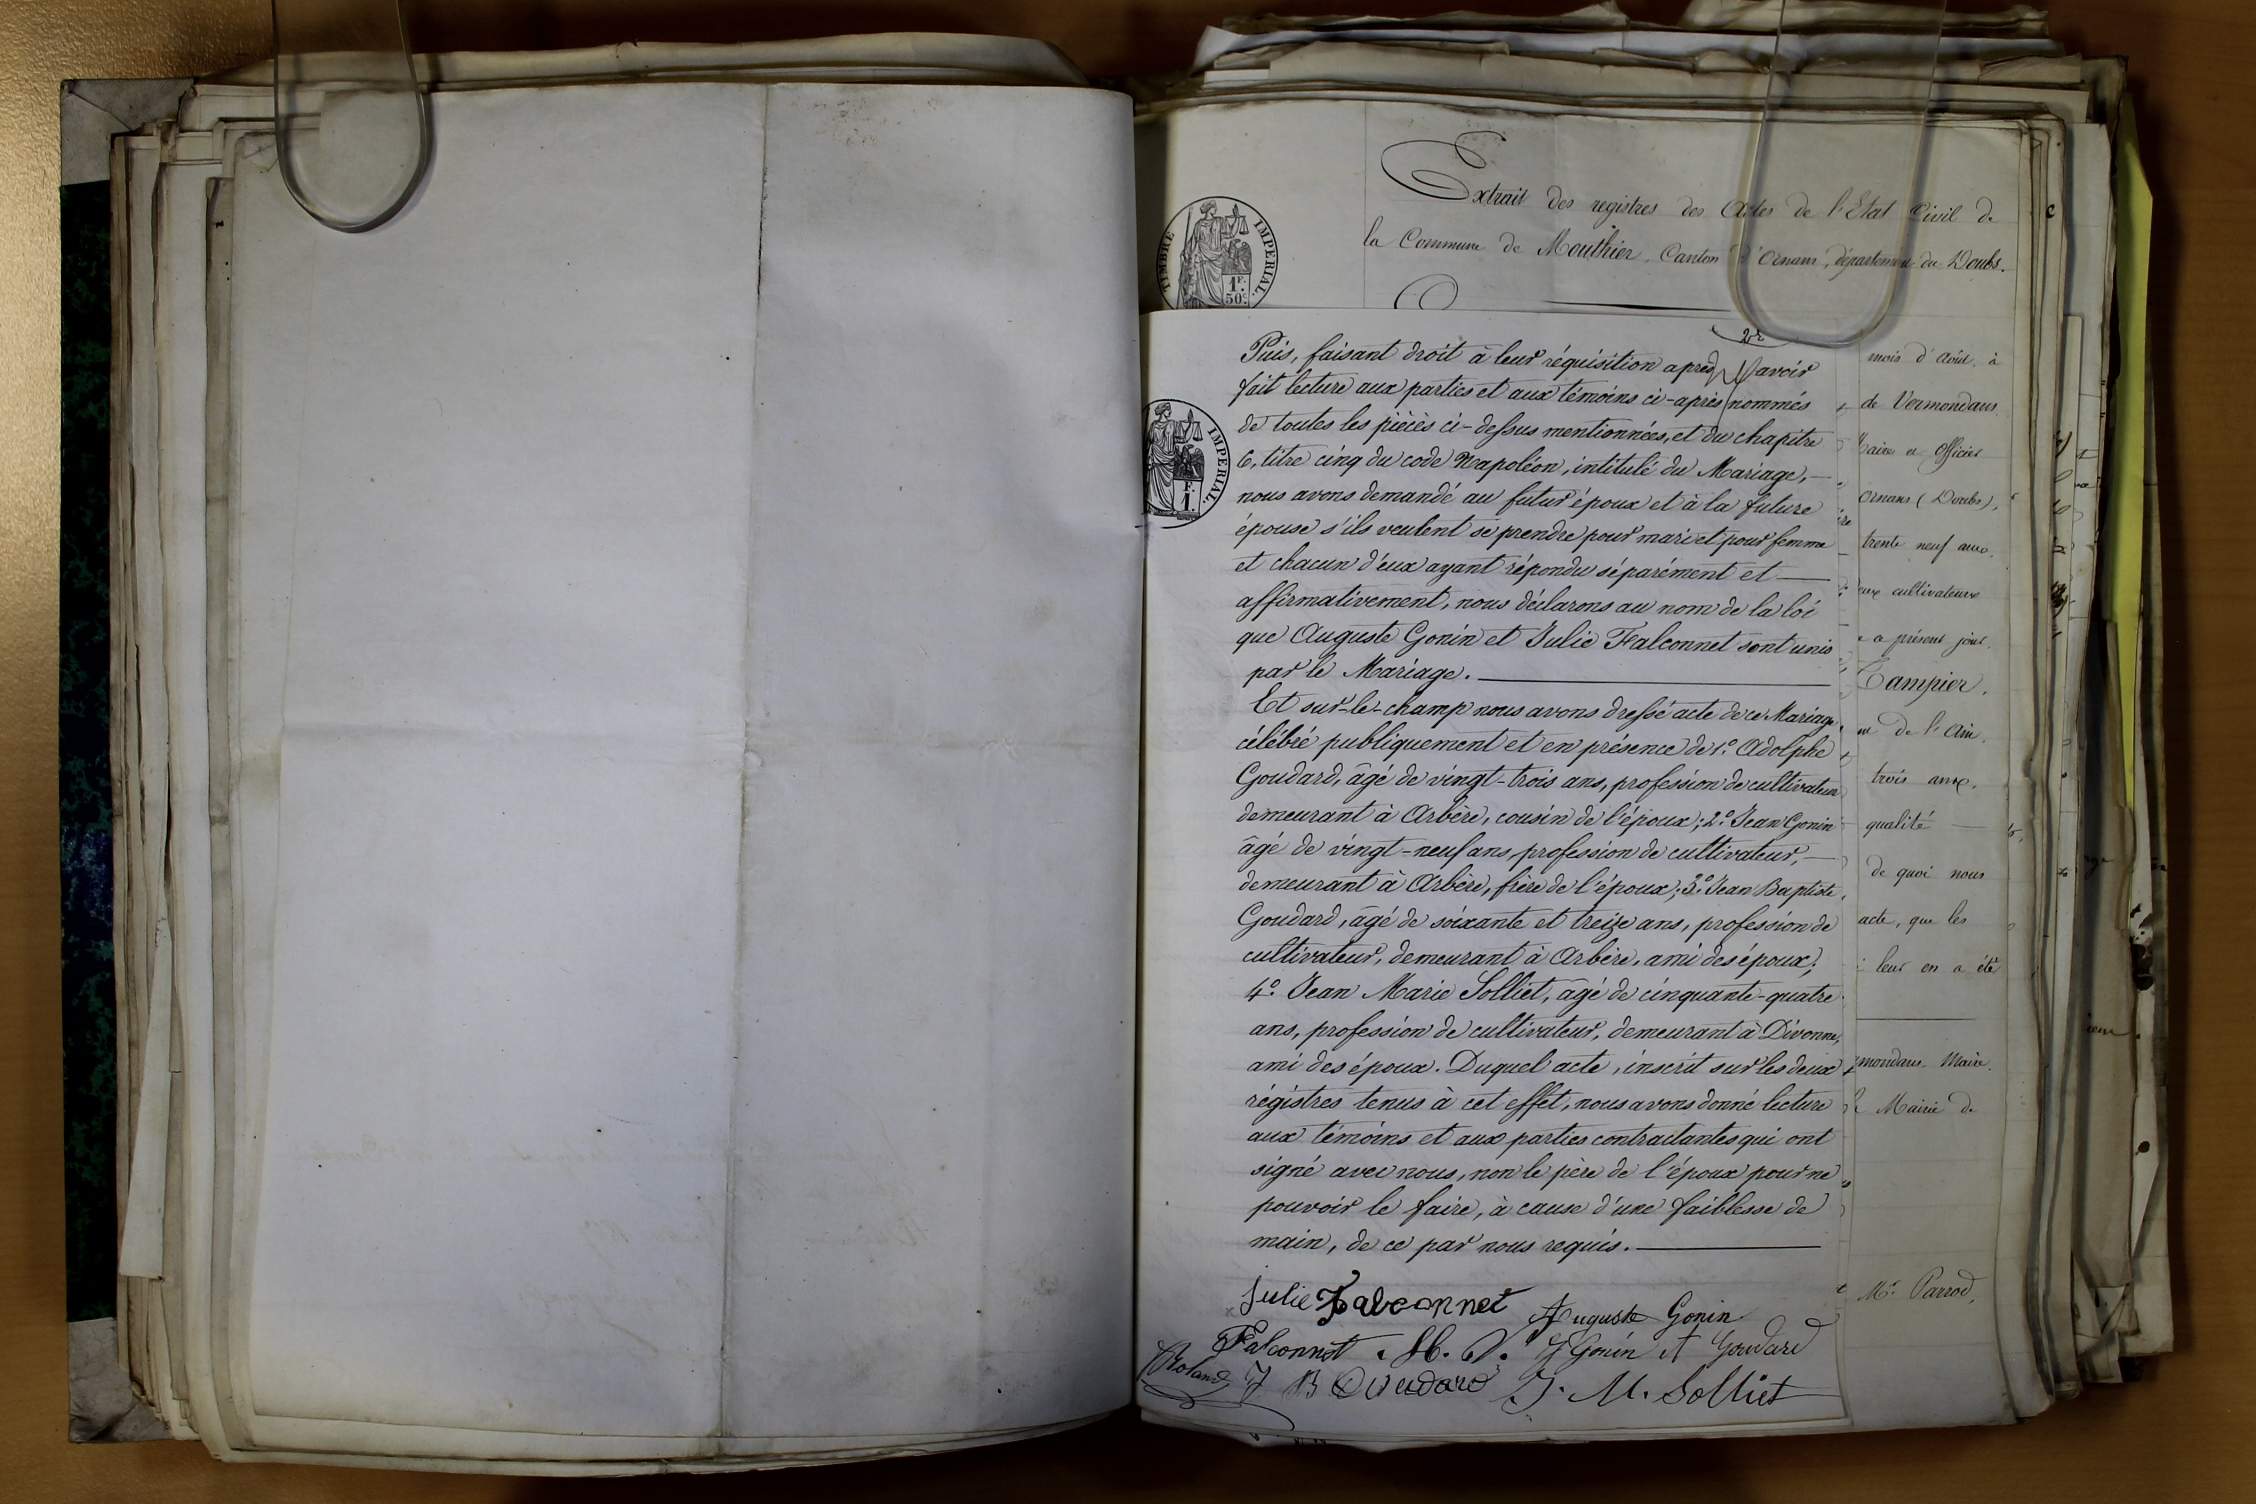 Extrait des registres des Actes de l'Etat Civil de
la Commune de Mouthier, Canton d'Ornans, département du Doubs.
TIMBRE IMPERIAL
1F.
50c.
2e
Puis, faisant droit à leur réquisition après avoir
fait lecture aux parties et aux témoins ci-après nommés
de toutes les pièces ci-dessus mentionnées, et du chapitre
6, titre cinq du code Napoléon, intitulé du Mariage, —
nous avons demandé au futur époux et à la future
épouse s'ils veulent se prendre pour mari et pour femme
et chacun d'eux ayant répondu séparément et —
affirmativement, nous déclarons au nom de la loi
que Auguste Gonin et Julie Falconnet sont unis
par le Mariage. —
Et sur-le-champ nous avons dressé acte de ce Mariage,
célébré publiquement et en présence de 1.° Adolphe
Goudard, âgé de vingt-trois ans, profession de cultivateur
demeurant à Arbère, cousin de l'époux; 2.° Jean Gonin
âgé de vingt-neuf ans, profession de cultivateur, —
demeurant à Arbère, frère de l'époux; 3.° Jean Baptiste
Goudard, âgé de soixante et treize ans, profession de
cultivateur, demeurant à Arbère, ami des époux;
4.° Jean Marie Solliet, âgé de cinquante-quatre
ans, profession de cultivateur, demeurant à Divonne,
ami des époux. Duquel acte, inscrit sur les deux
régistres tenus à cet effet, nous avons donné lecture
aux témoins et aux parties contractantes qui ont
signé avec nous, non le père de l'époux pour ne
pouvoir le faire, à cause d'une faiblesse de
main, de ce par nous requis. —
Julie Falconnet Auguste Gonin
Falconnet J Gonin A Goudard
Roland J B Goudard J. M. Solliet
IMPERIAL
F.
1.
mois d'août, à
de Vermondans
Maire et Officier
Ornans (Doubs),
trente neuf ans,
deux cultivateurs
a présent jour
Tampier,
de l'Ain
trois ans,
qualité —
de quoi nous
acte, que les
leur en a été
mondans Maire
Mairie de
Mr. Parrod,